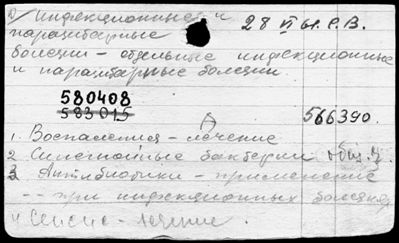 инфекционные и 28 VI
паразитарные
болезни – отдельные инфекционные
и паразитарные болезни.
580408
583015 566390.
1. Воспаления – лечение
2. Синегнойные бактерии общ. ч.
3. Антибиотики – применение
-- при инфекционных болезнях
и Сепсис – лечение.